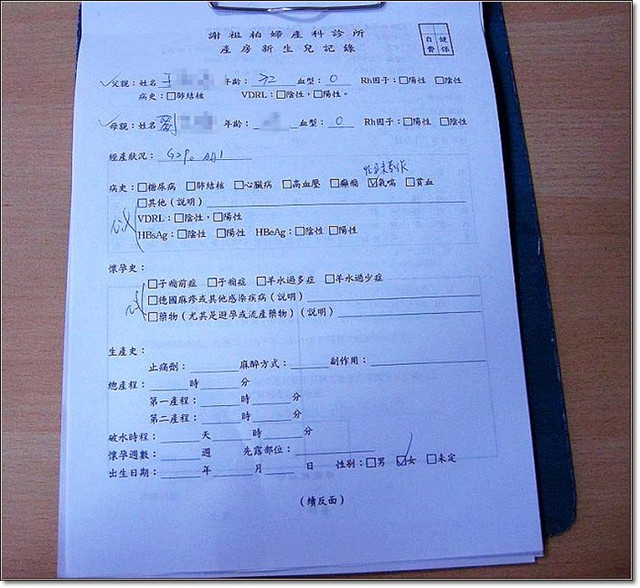 謝祖柏婦產科診所
產房新生兒記錄
自費 健保
父親：姓名 王 年齡： 32 血型： O Rh因子：□陽性 □陰性
病史：□肺結核 VDRL：□陰性，□陽性。
母親：姓名 劉 年齡： 血型： O Rh因子：□陽性 □陰性
經產狀況： G2P0 AA1
病史：□糖尿病 □肺結核 □心臟病 □高血壓 □癲癇 ☑氣喘 □貧血
□其他(說明)
VDRL：□陰性，□陽性
HBsAg：□陰性 □陽性 HBeAg：□陰性 □陽性
懷孕史：
□子癇前症 □子癇症 □羊水過多症 □羊水過少症
□德國麻疹或其他感染疾病(說明)
□藥物(尤其是避孕或流產藥物)(說明)
生產史：
止痛劑： 麻醉方式： 副作用：
總產程： 時 分
第一產程： 時 分
第二產程： 時 分
破水時程： 天 時 分
懷孕週數： 週 先露部位：
出生日期： 年 月 日 性別：□男 ☑女 □未定
(續反面)